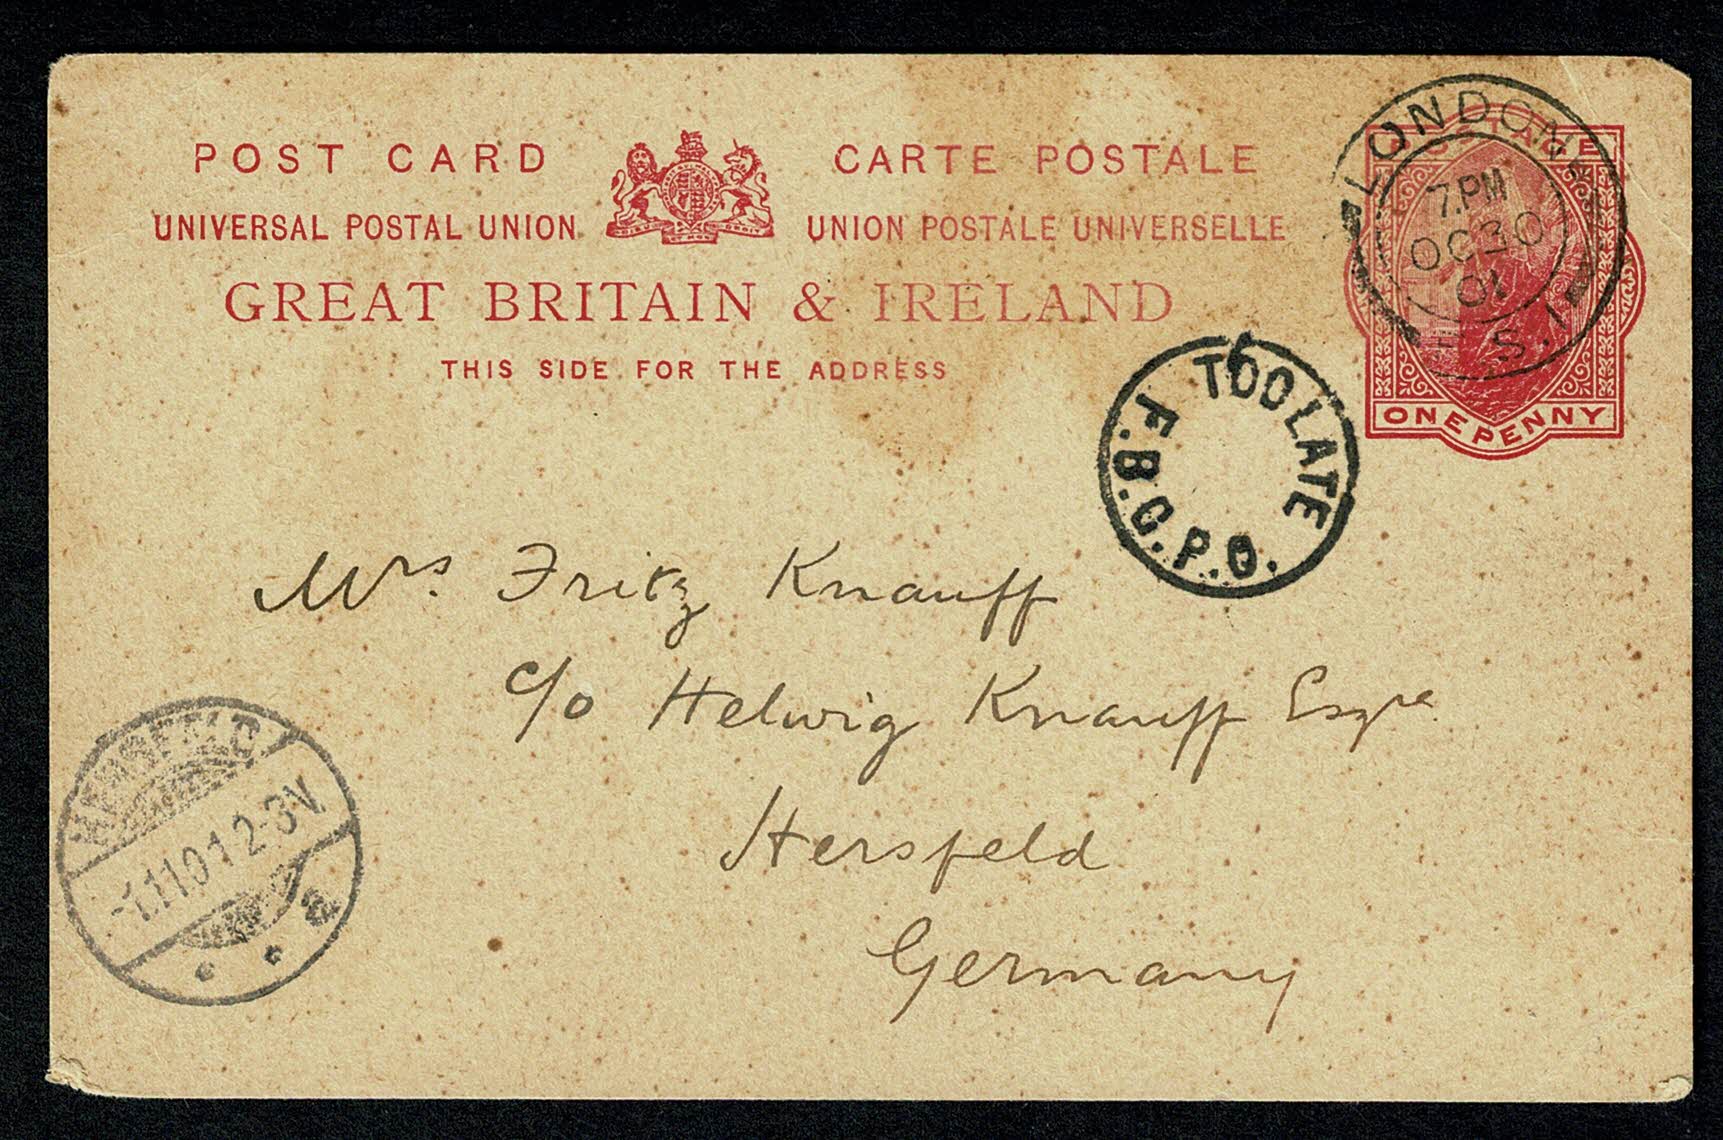 POST CARD CARTE POSTALE
UNIVERSAL POSTAL UNION UNION POSTALE UNIVERSELLE
GREAT BRITAIN & IRELAND
THIS SIDE FOR THE ADDRESS
LONDON
7.PM
OC30
01
S.1
ONE PENNY
TOO LATE
F.B.G.P.O.
Mrs. Fritz Knauff
c/o Helwig Knauff Esqre
Hersfeld
Germany
HERSFELD
-1.11.01 2-3V
a